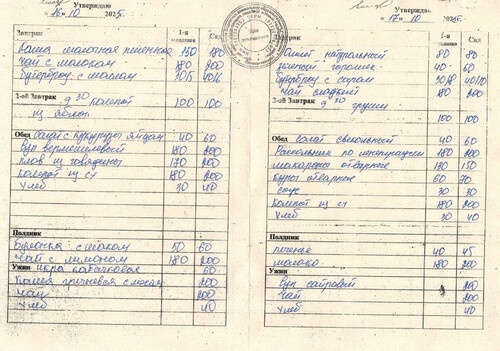 Утверждаю
«16» 10 2025г
Завтрак 1-я Сад
Каша молочная пшенная 150 180
Чай с молоком 180 200
Бутерброд с маслом 30/5 40/6
2-ой Завтрак 9 30 компот 100 100
из яблок
Обед Салат с кукурузы, яйцами 40 60
Суп вермешелевый 180 200
Плов из говядины 170 200
Компот из с/х 180 200
Хлеб 30 40
Полдник
Булочка с маком 50 60
Чай с лимоном 180 200
Ужин икра кабачковая 60
Каша гречневая с мясом 200
Чай 200
Хлеб 40
Утверждаю
«17» 10 2025г
Завтрак 1-я Сад
Омлет натуральный 80 80
зеленый горошек 40 60
Бутерброд с сыром 40/10
Чай сладкий 180 200
2-ой Завтрак 9 30 груши
100 100
Обед Салат свекольный 40 60
Рассольник по ленинградски 180 200
макароны отварные 130 150
Куры отварные 60 70
соус 30 30
Компот из с/х 180 200
Хлеб 30 40
Полдник
печенье 40 45
молоко 180 200
Ужин
Суп сайровый 200
Чай 200
Хлеб 40